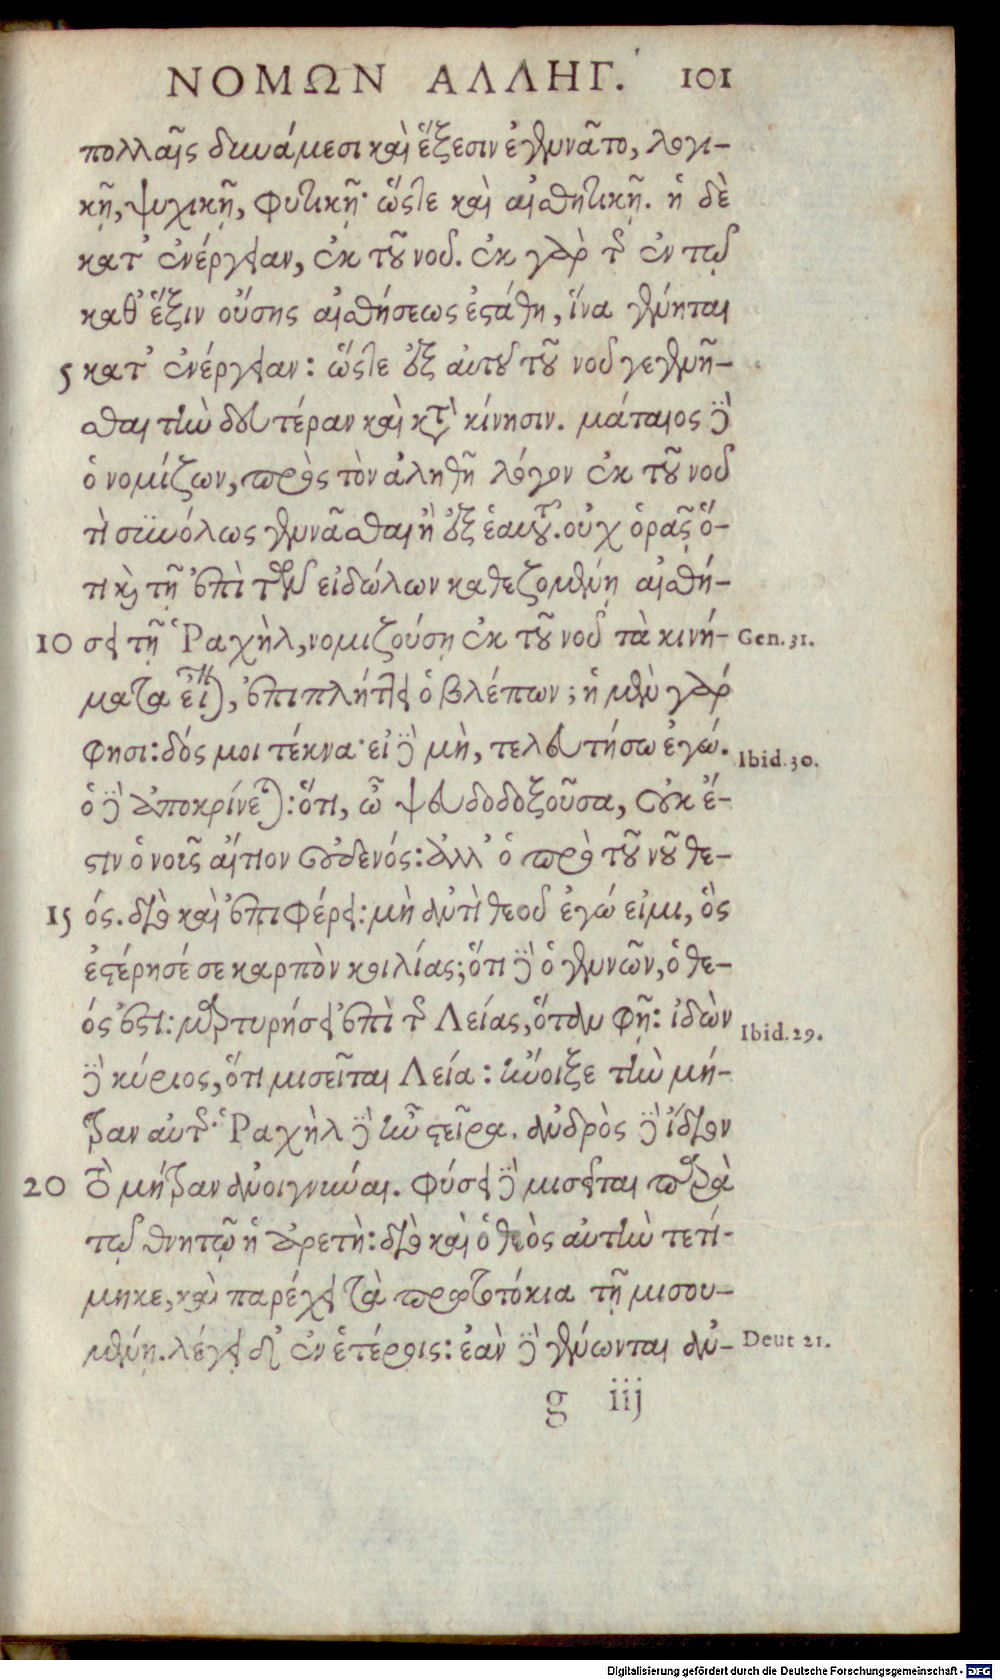 ΝΟΜΩΝ ΑΛΛΗΓ. 101
πολλαῖς δυνάμεσι καὶ ἕξεσιν ἐγεννᾶτο, λογι-
κῇ, ψυχικῇ, φυτικῇ· ὥστε καὶ αἰσθητικῇ. ἡ δὲ
κατ' ἐνέργειαν, ἐκ τοῦ νοῦ. ἐκ γὰρ τῆς ἐν τῷ
καθ' ἕξιν οὔσης αἰσθήσεως ἐστάθη, ἵνα γένηται
5 κατ' ἐνέργειαν: ὥστε ἐξ αὐτοῦ τοῦ νοῦ γεγενῆ-
σθαι τὴν δευτέραν καὶ κατὰ κίνησιν. μάταιος δὲ
ὁ νομίζων, πρὸς τὸν ἀληθῆ λόγον ἐκ τοῦ νοῦ
τὶ συνόλως γεννᾶσθαι ἢ ἐξ ἑαυτοῦ. οὐχ ὁρᾷς ὅ-
τι καὶ τῇ ἐπὶ τῶν εἰδώλων καθεζομένῃ αἰσθή-
10 σει τῇ Ῥαχὴλ, νομιζούσῃ ἐκ τοῦ νοῦ τὰ κινή-
ματα εἶναι, ἐπιπλήττει ὁ βλέπων; ἡ μὲν γάρ
φησι: δός μοι τέκνα· εἰ δὲ μὴ, τελευτήσω ἐγώ.
ὁ δὲ ἀποκρίνεται: ὅτι, ὦ ψευδοδοξοῦσα, οὐκ ἔ-
στιν ὁ νοῦς αἴτιον οὐδενός: ἀλλ' ὁ πρὸ τοῦ νοῦ θε-
15 ός. διὸ καὶ ἐπιφέρει: μὴ ἀντὶ θεοῦ ἐγώ εἰμι, ὃς
ἐστέρησέ σε καρπὸν κοιλίας; ὅτι δὲ ὁ γεννῶν, ὁ θε-
ός ἐστι: μαρτυρήσει ἐπὶ τῆς Λείας, ὅταν φῇ: ἰδὼν
δὲ κύριος, ὅτι μισεῖται Λεία: ἤνοιξε τὴν μή-
τραν αὐτῆς· Ῥαχὴλ δὲ ἦν στεῖρα. ἀνδρὸς δὲ ἴδιον
20 τὸ μήτραν ἀνοιγνύναι. φύσει δὲ μισεῖται παρὰ
τῷ θνητῷ ἡ ἀρετὴ: διὸ καὶ ὁ θεὸς αὐτὴν τετί-
μηκε, καὶ παρέχει τὰ πρωτοτόκια τῇ μισου-
μένῃ. λέγει δ' ἐν ἑτέροις: ἐὰν δὲ γένωνται ἀν-
Gen. 31.
Ibid. 30.
Ibid. 29.
Deut 21.
g iij
Digitalisierung gefördert durch die Deutsche Forschungsgemeinschaft - DFG